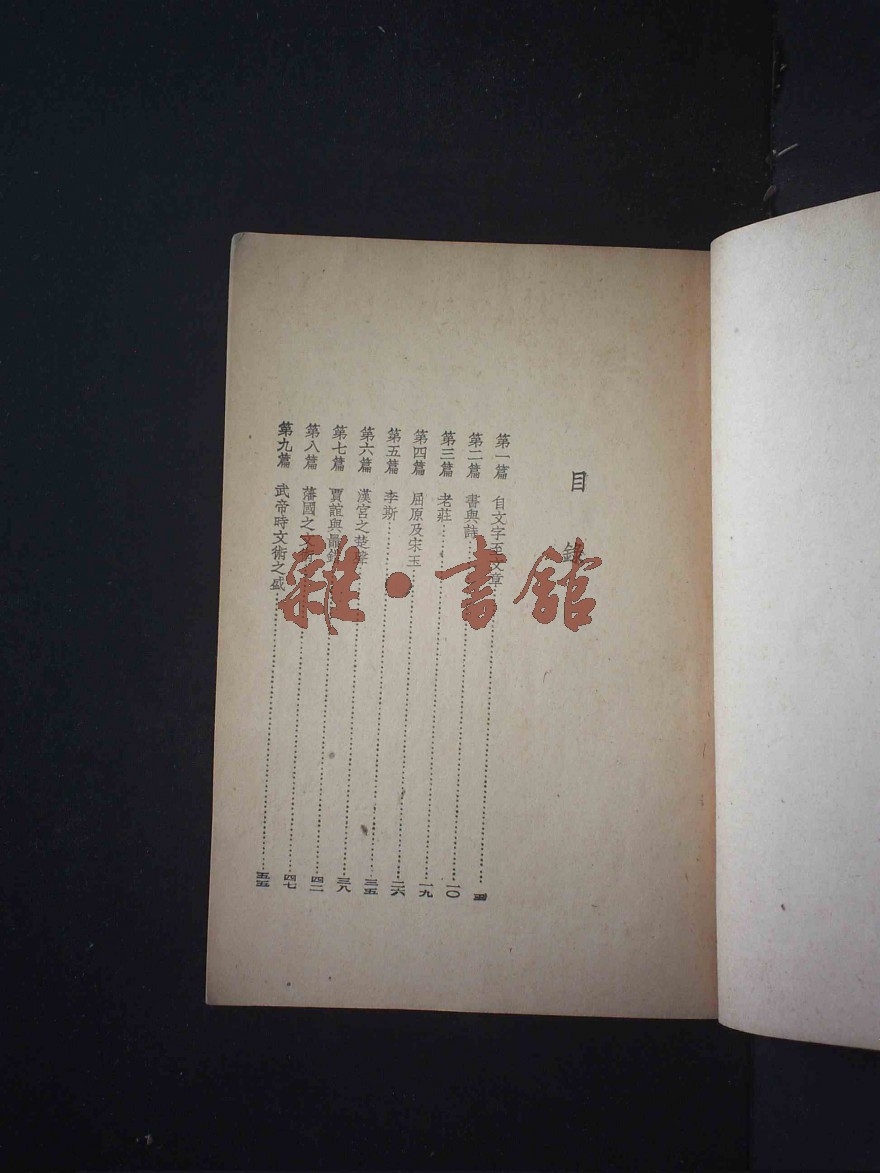 目錄
第一篇 自文字至文章
第二篇 書與詩 一〇
第三篇 老莊 一九
第四篇 屈原及宋玉 二六
第五篇 李斯 三五
第六篇 漢宮之楚聲 三八
第七篇 賈誼與晁錯 四二
第八篇 藩國之文術 四七
第九篇 武帝時文術之盛 五五
雜·書館